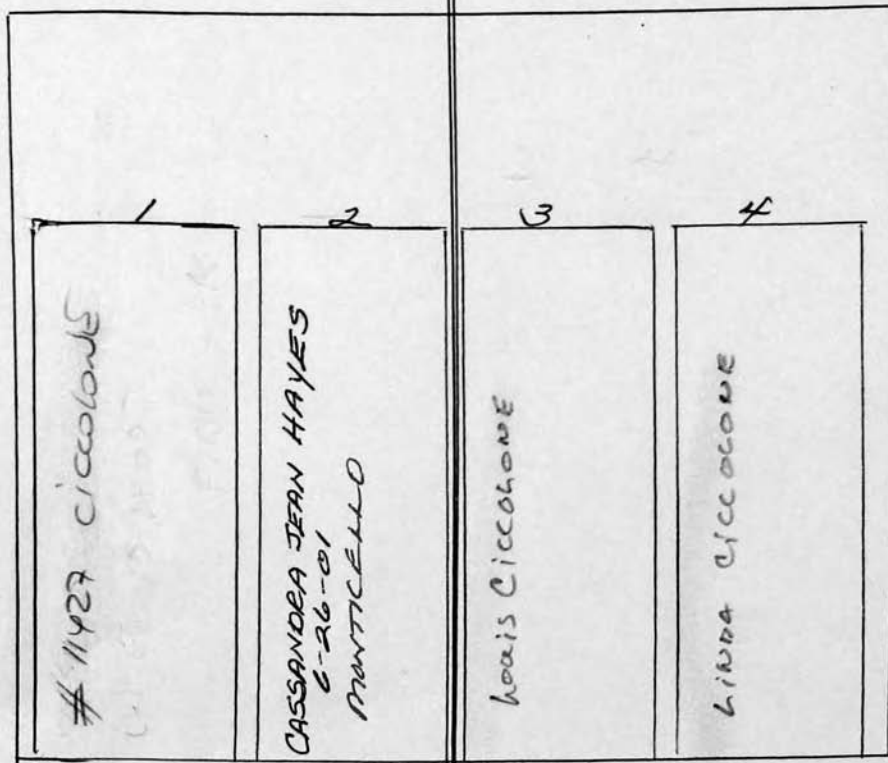 1
# 11427 CiccoloNE
2
CASSANDRA JEAN HAYES
6-26-01
MONTICELLO
3
Louis CiccoLONE
4
LiNDA CiccoLONE